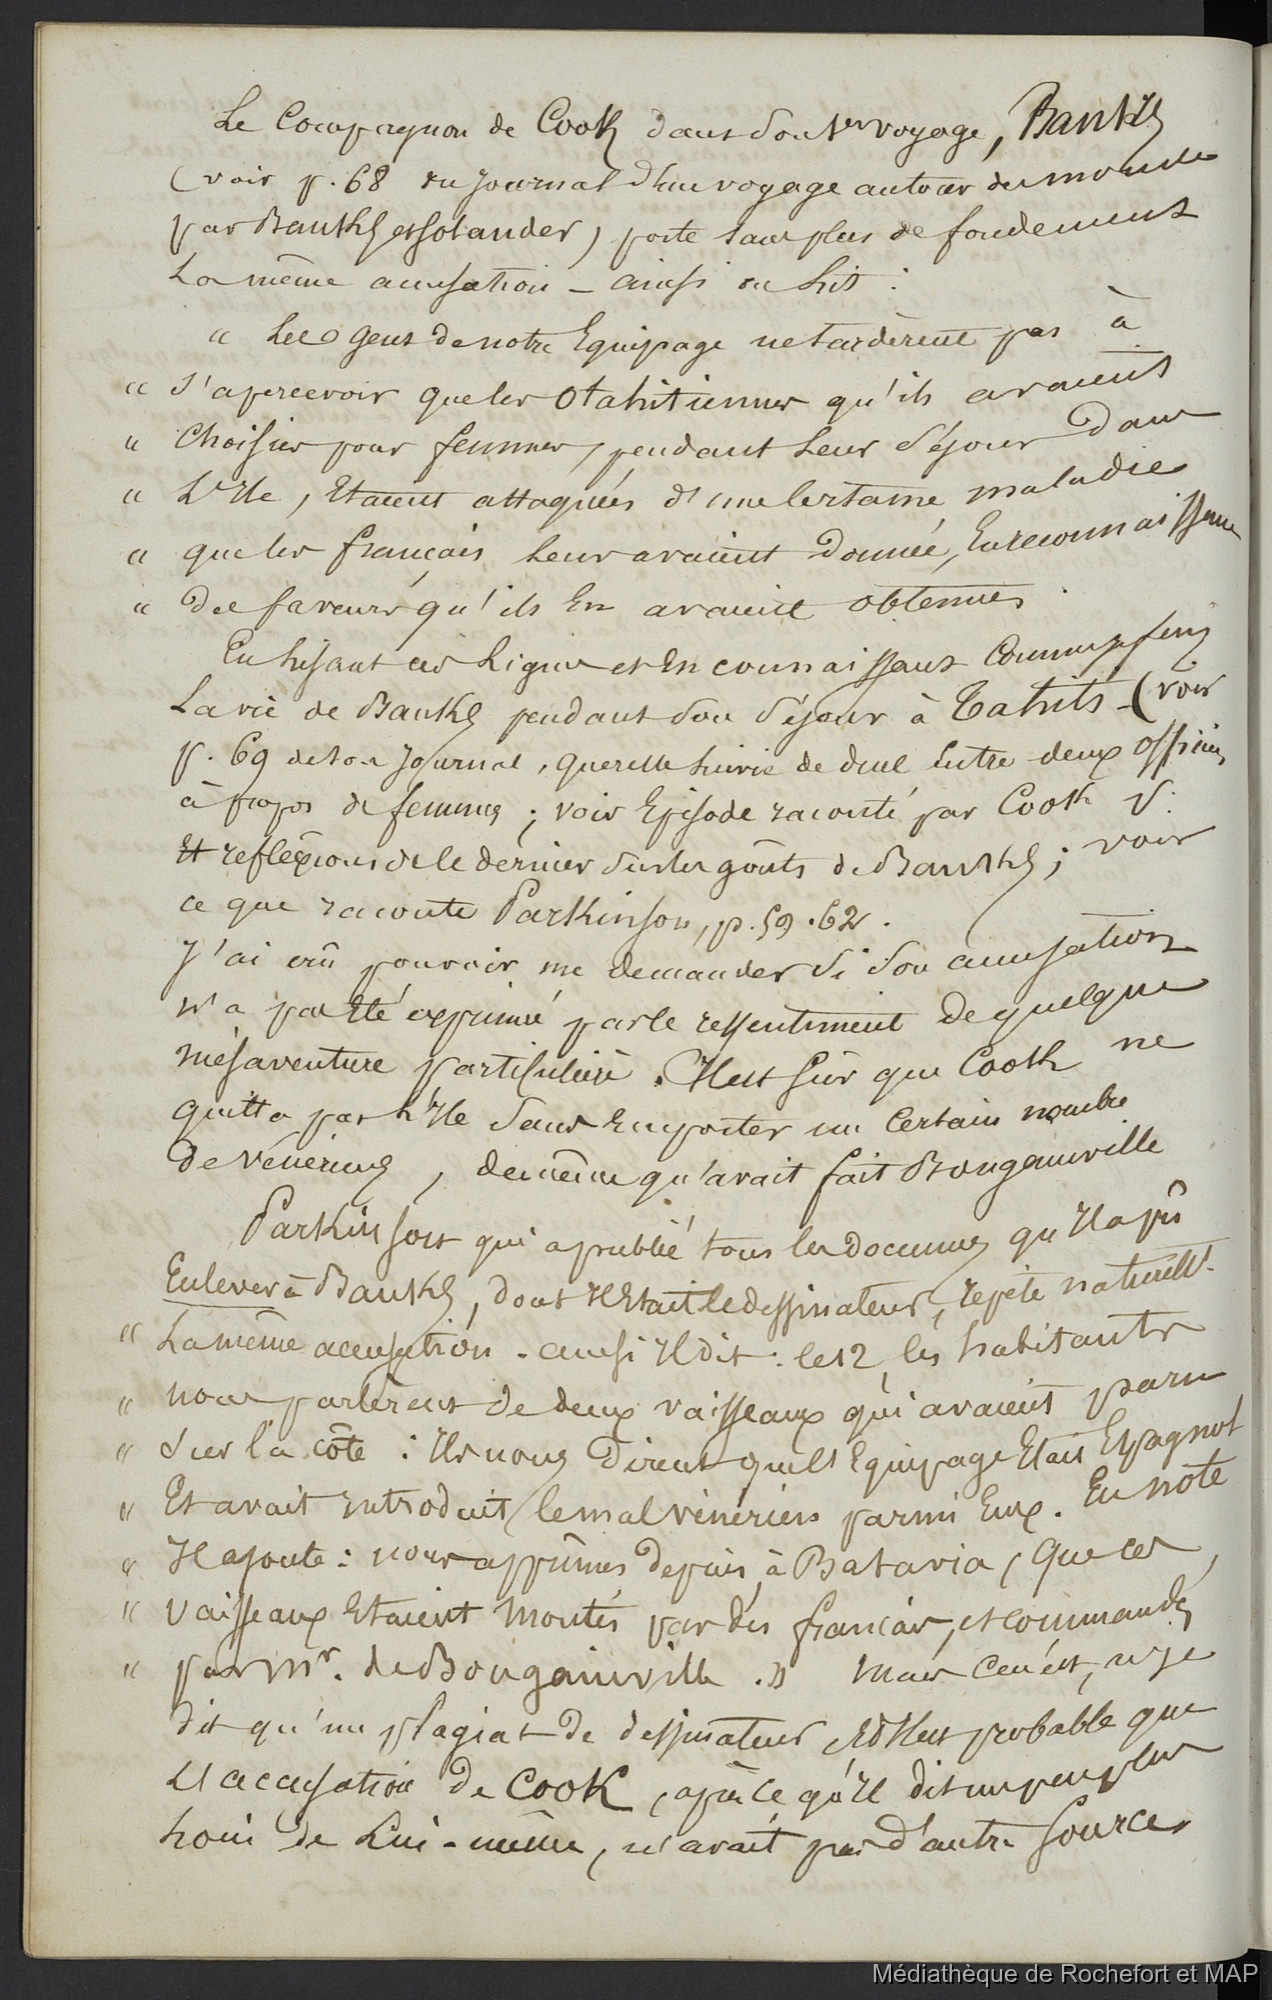 Le Compagnon de Cook dans son 1er voyage, Banks
(voir p. 68 du Journal d'un voyage autour du monde
par Banks et Solander) porte sans plus de fondement
La même accusation – ainsi on lit :
" Les Gens de notre Equipage ne tardèrent pas à
" S'apercevoir que les Otahitiennes qu'ils avaient
" Choisies pour femmes, pendant leur Séjour dans
" L'Ile, Etaient attaquées d'une Certaine maladie
" que les français leur avaient donnée, En reconnaissance
" des faveurs qu'ils En avaient obtenues
En lisant ces Lignes et En connaissant
La vie de Banks pendant son Séjour à Tahiti – (voir
p. 69 de son Journal, querelle suivie de duel Entre deux officiers
à propos de femmes ; voir Episode raconté par Cook
Et reflexions de ce dernier sur les goûts de Banks ; voir
ce que raconte Parkinson, p. 59. 62.
J'ai crû pouvoir me demander Si Son accusation
n'a pas Eté exprimée par le ressentiment de quelque
mésaventure particulière. Il est sûr que Cook ne
quitta pas L'Ile Sans Emporter un Certain nombre
de vénériens, de même qu'avait fait Bougainville
Parkinson qui a publié tous les documens qu'Il a pû
Enlever à Banks, dont Il Etait le dessinateur, repète naturellt
" La même accusation – ainsi Il dit : le 12, les habitants
" nous parlèrent de deux vaisseaux qui avaient paru
" Sur la côte : Ils nous dirent que l'Equipage Etait Espagnol
" Et avait Introduit le mal vénérien parmi Eux. En note
" Il ajoute : nous apprîmes depuis, à Batavia, que ces
" Vaisseaux Etaient montés par des français, et commandés
" par Mr. de Bougainville. » Mais Ce n'est,
dit qu'un plagiat de dessinateur Et Il est probable que
L'accusation de Cook, après ce qu'Il dit un peu plus
loin de Lui-même, n'avait pas d'autre Source.
Médiathèque de Rochefort et MAP